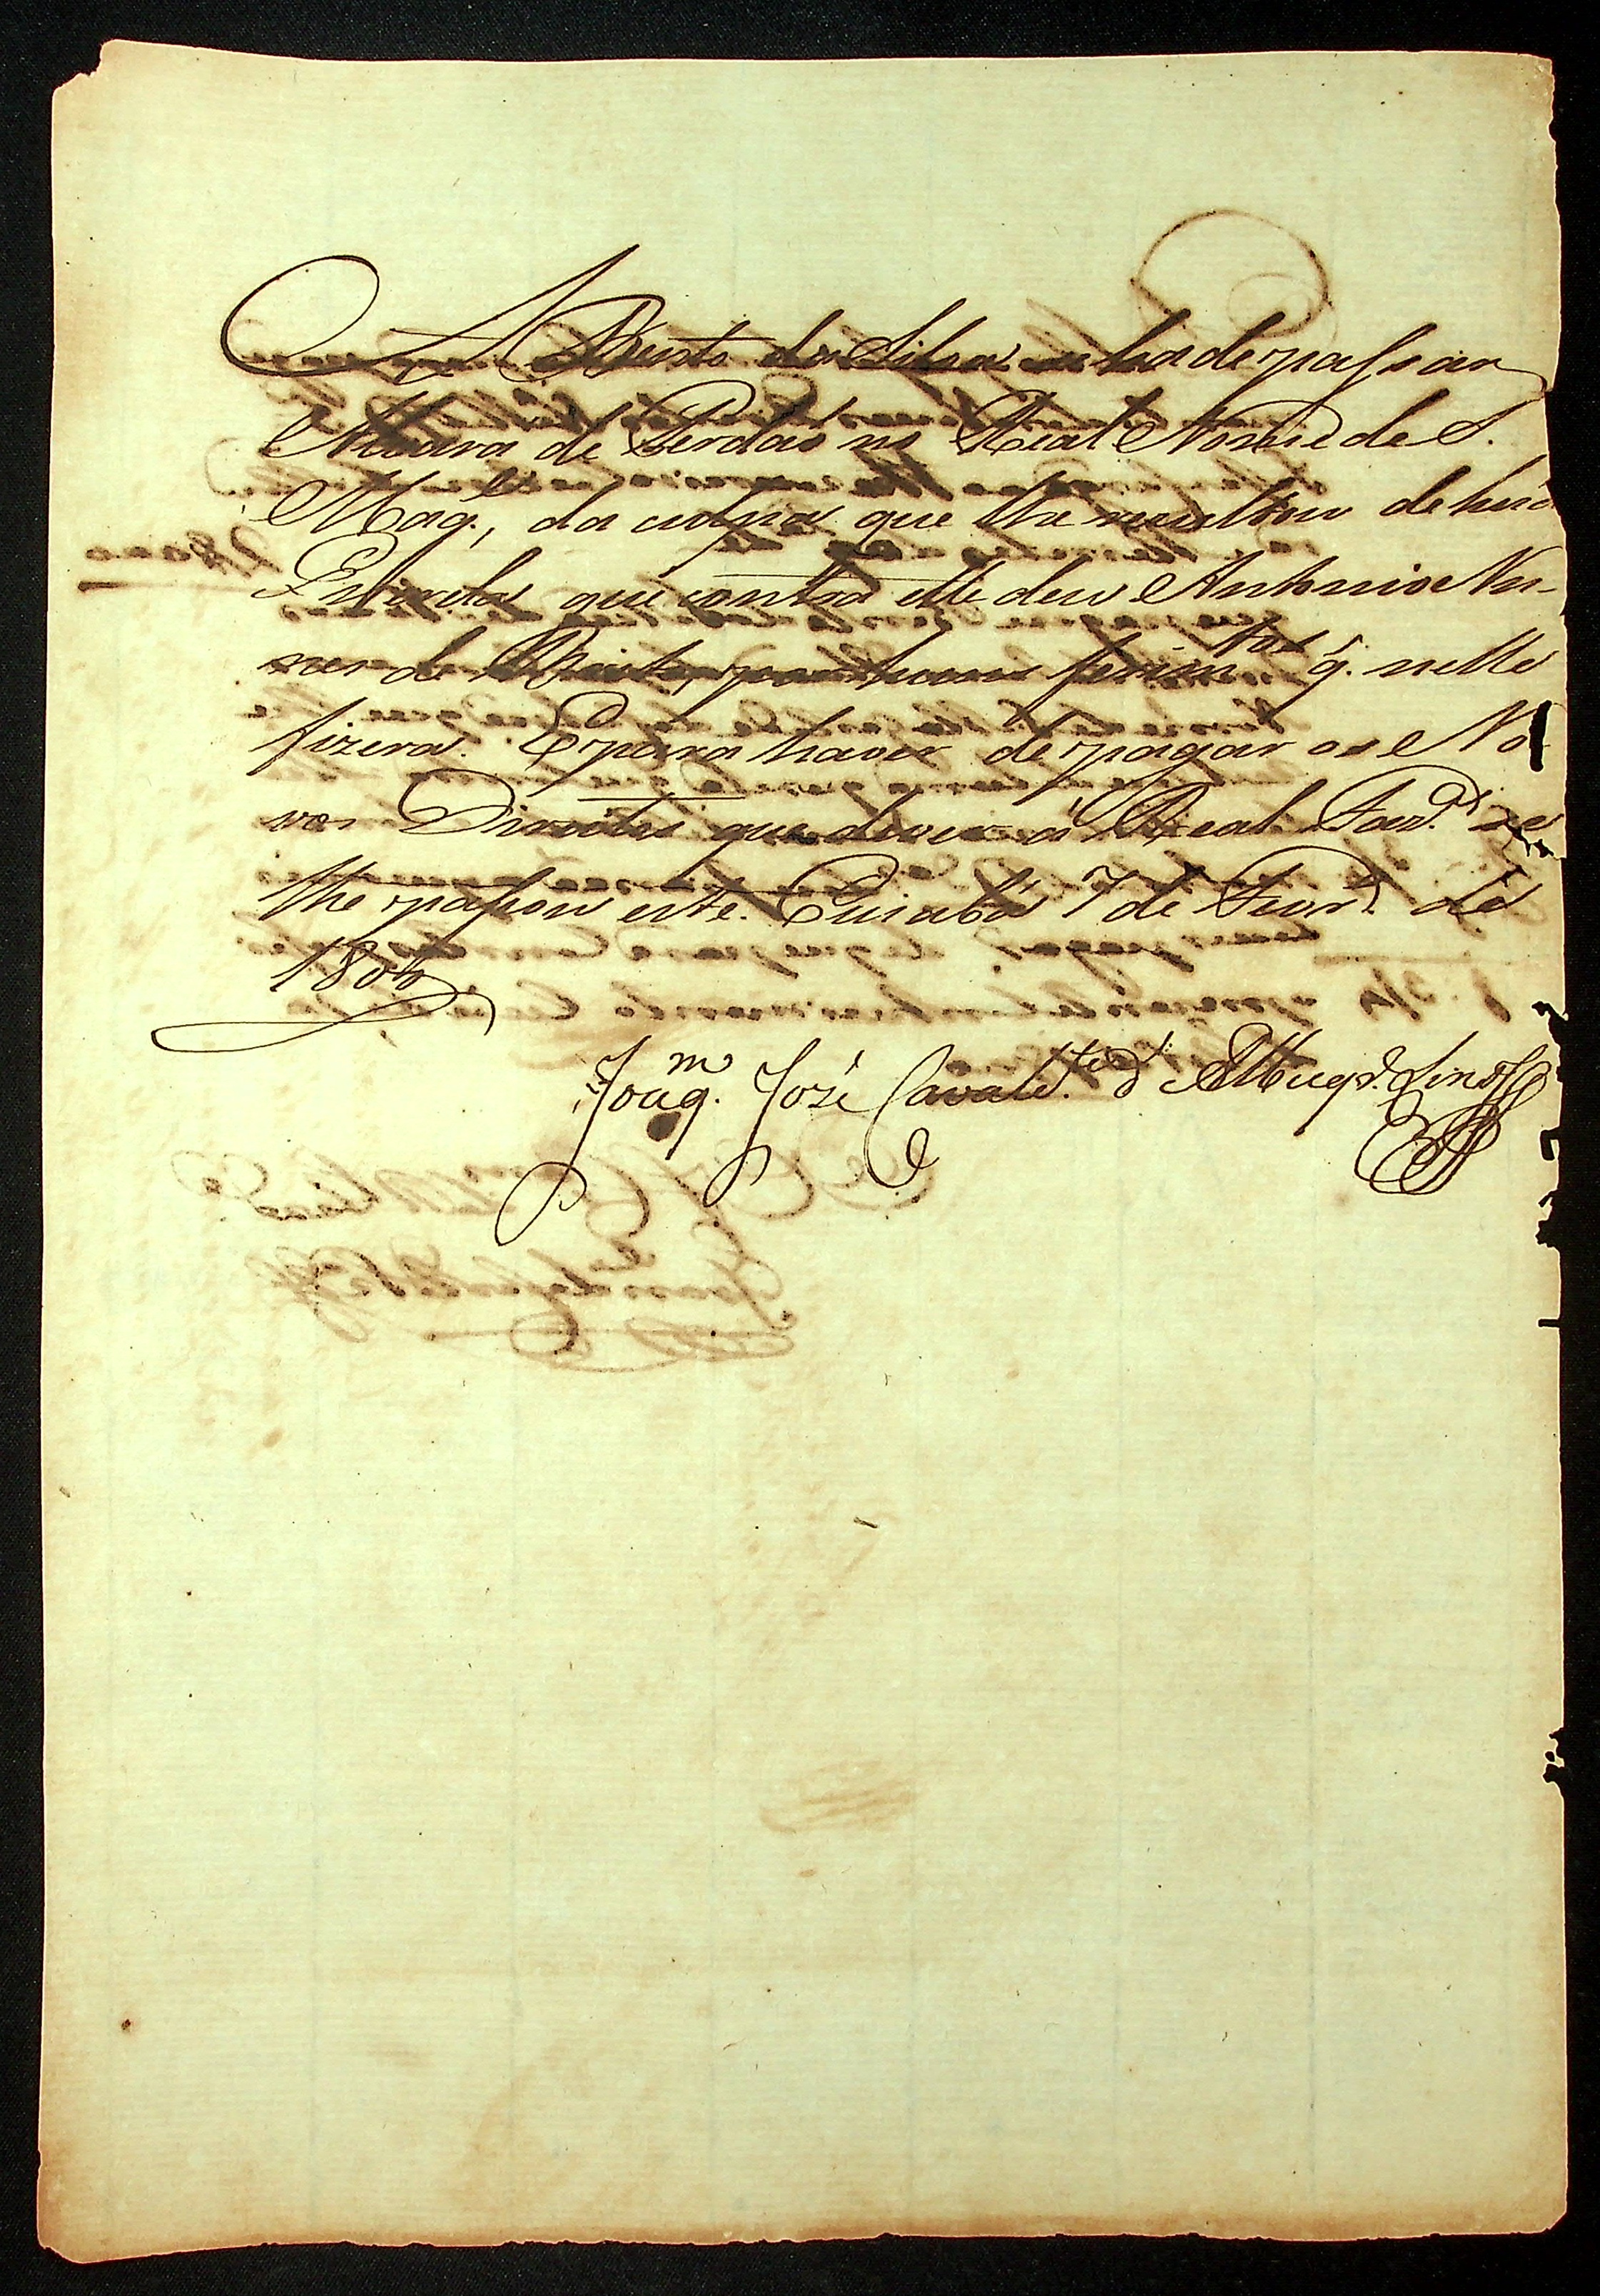 A Bento da Silva se ha de passar
Alvara de Perdaõ no Real Nome de S.
Mag.e, da culpa que lhe rezultou de hua
Querela que contra elle deu Antonio Nu-
nes de Brito, por huns ferim.tos q. nelle
fizera. E para haver de pagar os No-
vos Direitos que dever á Real Faz.da se
lhe passou este. Cuiabá 7 de Fever.o de
1804
Joaq.m José Cavalc.te d'Albuq.e Lins